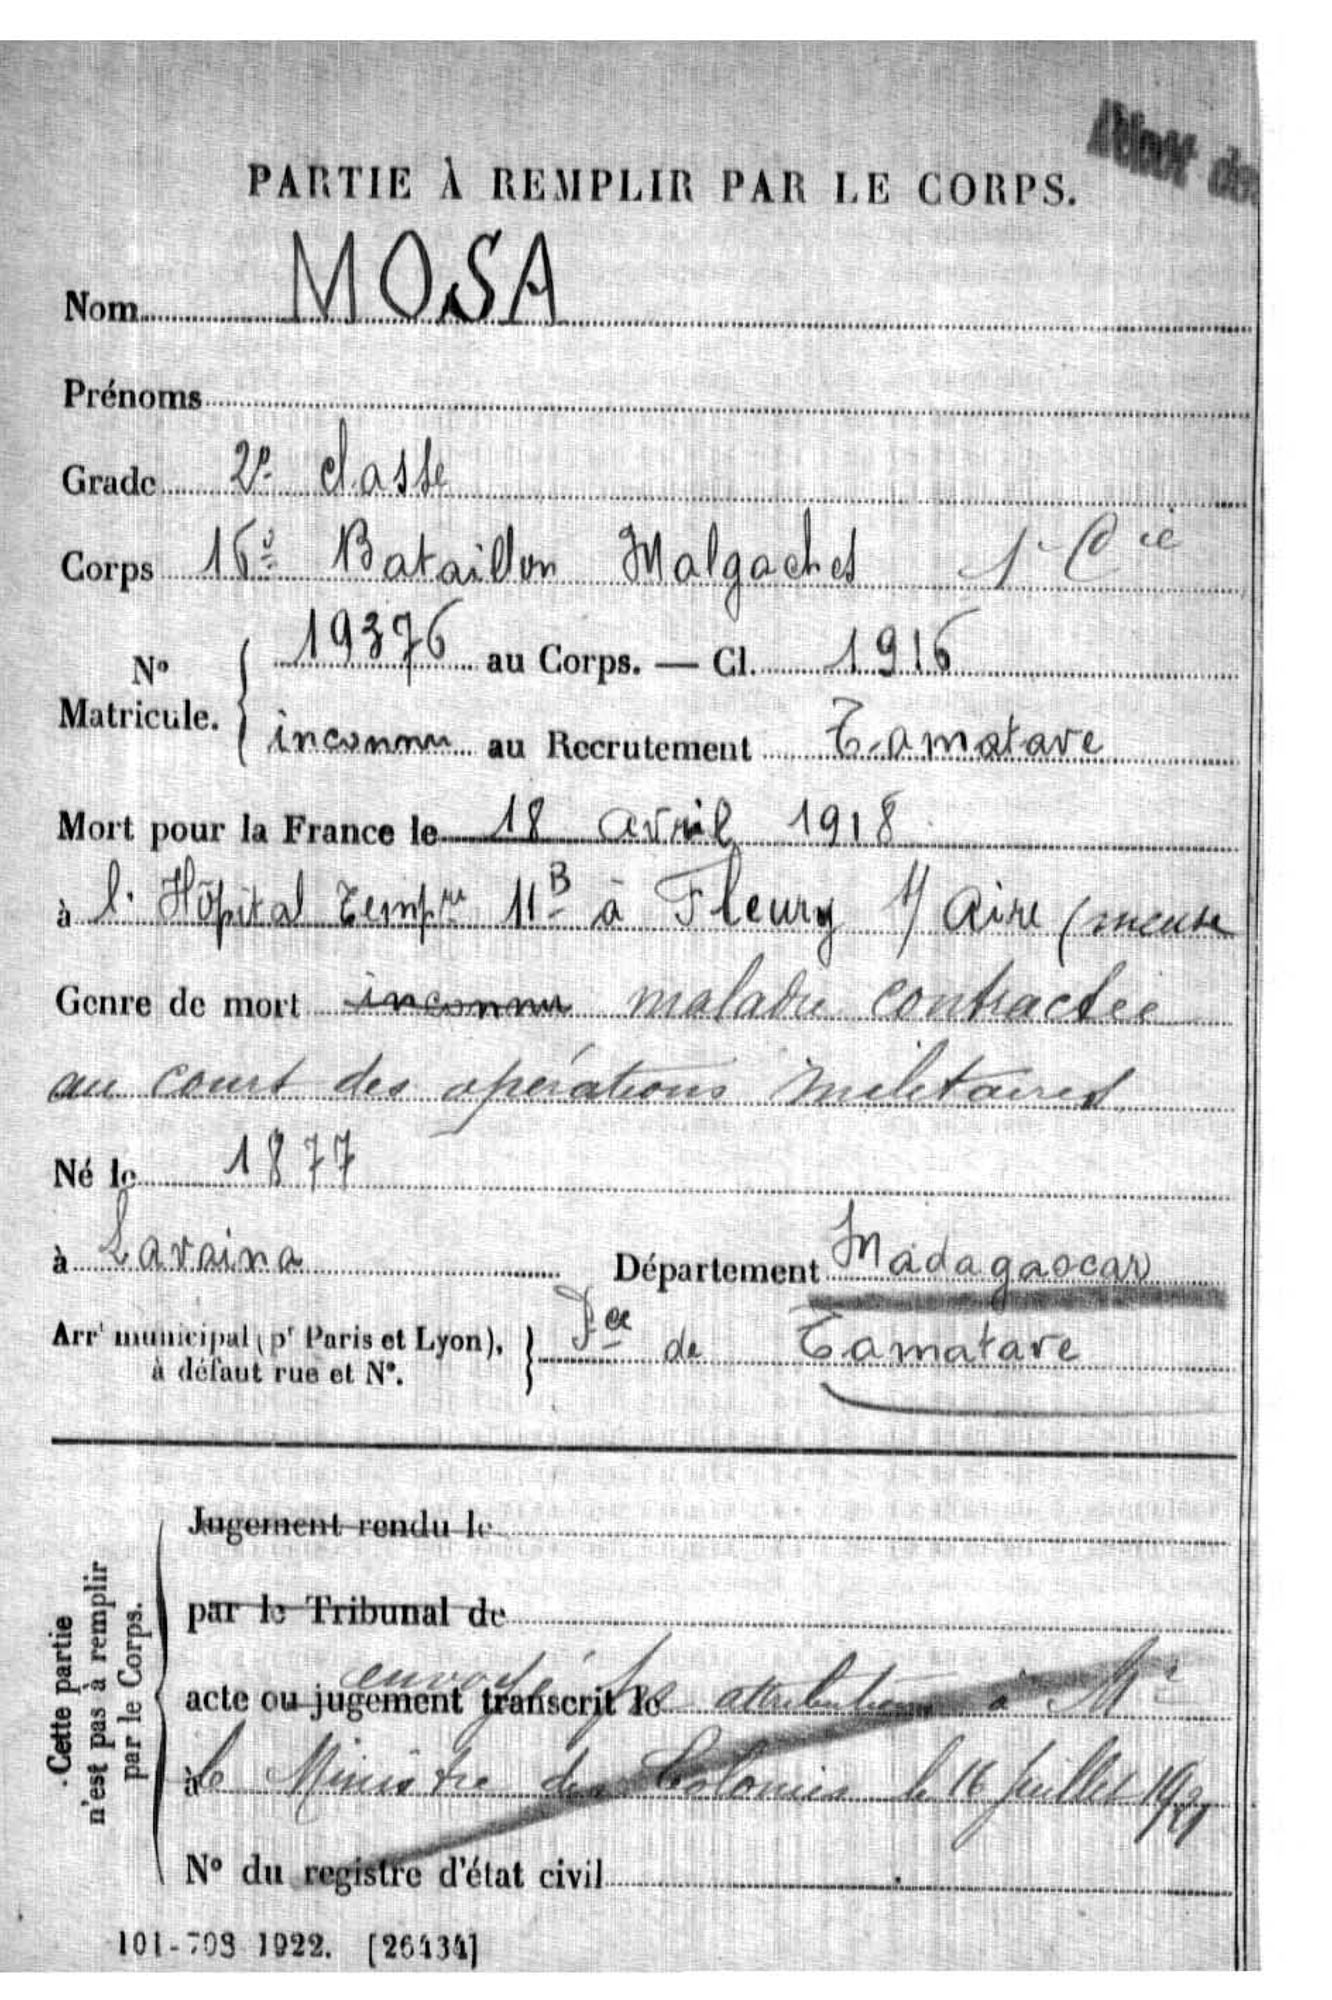 PARTIE À REMPLIR PAR LE CORPS.
Nom MOSA
Prénoms
Grade 2e classe
Corps 16e Bataillon Malgaches 1e Cie
No Matricule. 19376 au Corps. — Cl. 1916
inconnu au Recrutement Tamatave
Mort pour la France le 18 avril 1918
à l' Hôpital Tempre 11B à Fleury s/ Aire (meuse
Genre de mort inconnu maladie contractée
au court des opérations militaires
Né le 1877
à Lavaina Département Madagascar
Arrt municipal (pr Paris et Lyon), à défaut rue et No. Pce de Tamatave
Cette partie n'est pas à remplir par le Corps.
Jugement rendu le
par le Tribunal de
envoyé attributions à Mr
acte ou jugement transcrit le
à le Ministre des Colonies le 16 Juillet
No du registre d'état civil
101-708 1922. [26434]